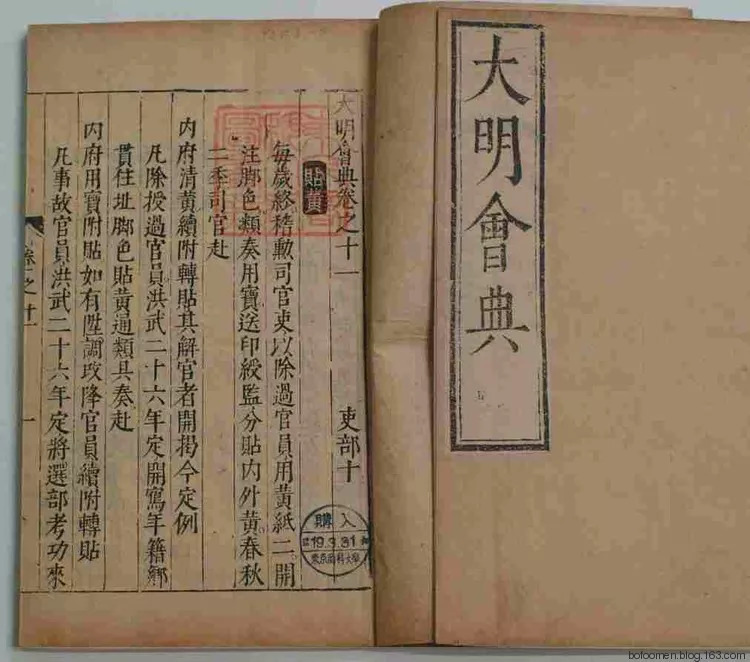 大明會典
大明會典卷之十一
吏部十
貼黄
每歲終稽勳司官吏以除過官員用黄紙二開
注脚色類奏用寶送印綬監分貼内外黄春秋
二季司官赴
内府清黄續附轉貼其解官者開揭今定例
凡除授過官員洪武二十六年定開寫年籍鄉
貫住址脚色貼黄通類具奏赴
内府用寶附貼如有陞調改降官員續附轉貼
凡事故官員洪武二十六年定將選部考功來
卷之十一
一
購入
19.3.31
boloomen.blog.163.com